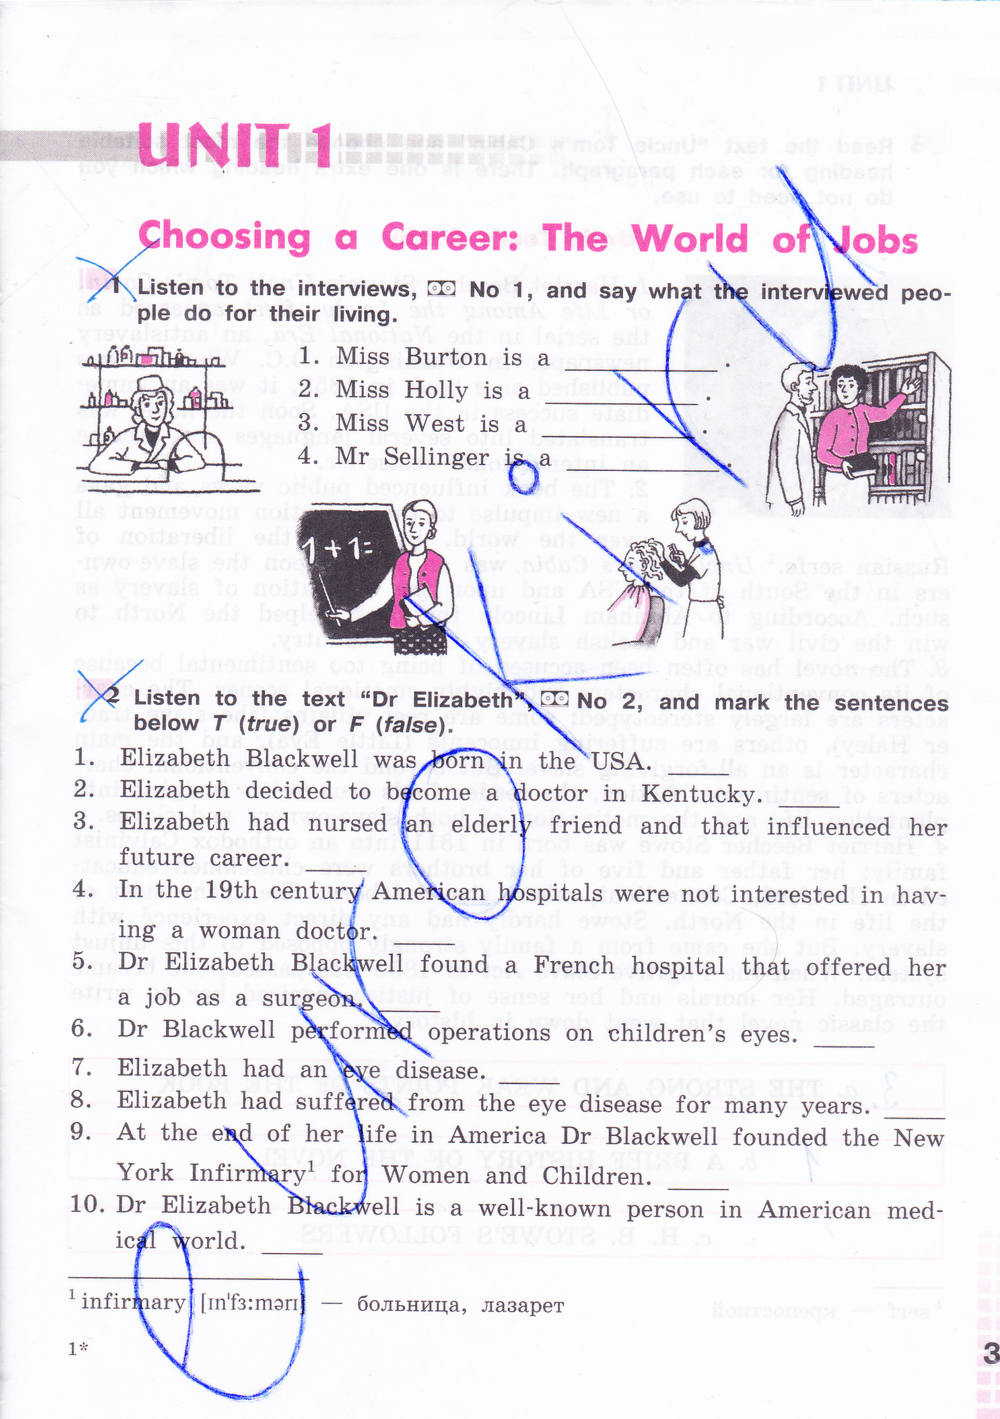 UNIT 1
Choosing a Career: The World of Jobs
1 Listen to the interviews, No 1, and say what the interviewed peo-
ple do for their living.
1. Miss Burton is a ________.
2. Miss Holly is a ________.
3. Miss West is a ________.
4. Mr Sellinger is a ________.
1+1=
2 Listen to the text “Dr Elizabeth”, No 2, and mark the sentences
below T (true) or F (false).
1. Elizabeth Blackwell was born in the USA. ____
2. Elizabeth decided to become a doctor in Kentucky. ____
3. Elizabeth had nursed an elderly friend and that influenced her
future career. ____
4. In the 19th century American hospitals were not interested in hav-
ing a woman doctor. ____
5. Dr Elizabeth Blackwell found a French hospital that offered her
a job as a surgeon. ____
6. Dr Blackwell performed operations on children’s eyes. ____
7. Elizabeth had an eye disease. ____
8. Elizabeth had suffered from the eye disease for many years. ____
9. At the end of her life in America Dr Blackwell founded the New
York Infirmary¹ for Women and Children. ____
10. Dr Elizabeth Blackwell is a well-known person in American med-
ical world. ____
¹ infirmary [ɪnˈfɜ:mərɪ] — больница, лазарет
1*
3